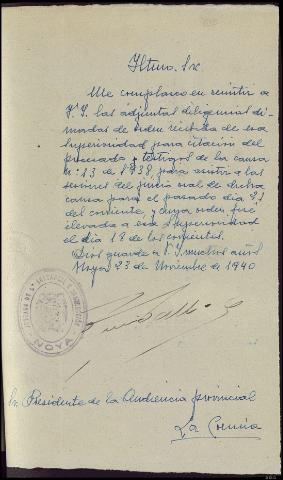 Iltmo. Sr.
Me complazco en remitir a
V. I. las adjuntas diligencias di-
manadas de orden recibida de esa
Superioridad para citación del
procesado y testigos de la causa
nº 13 de 1938, para asistir a las
sesiones del juicio oral de dicha
causa para el pasado día 21
del corriente, y cuya orden fué
elevada a esa Superioridad
el día 18 de los corrientes.
Dios guarde a V. I. muchos años
Noya 23 de Noviembre de 1940
NOYA
Sr. Presidente de la Audiencia provincial
La Coruña